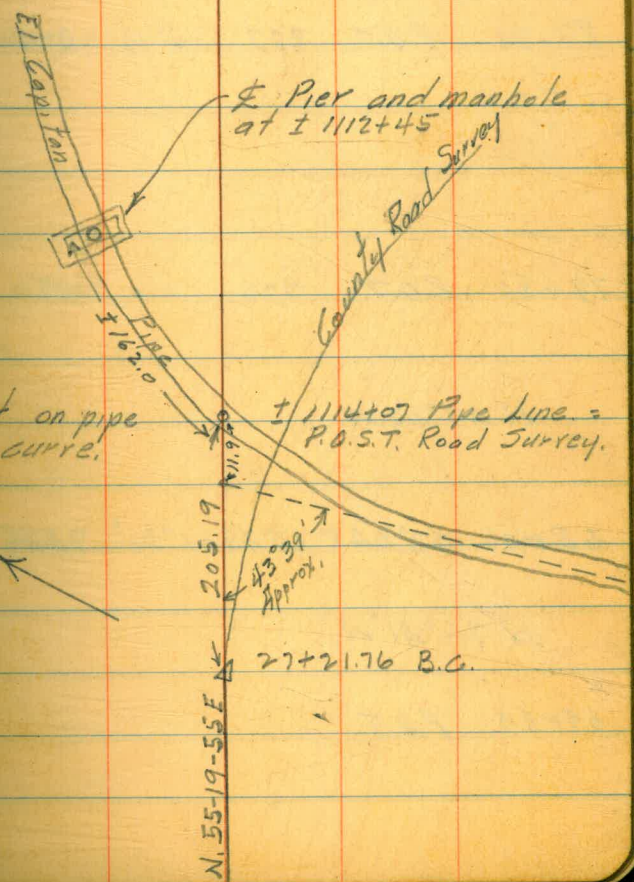 El Capitan
₵ Pier and manhole
at ± 1112+45
County Road Survey
Pipe
± 162.0
on pipe
curve.
± 1114+07 Pipe Line =
P.O.S.T. Road Survey.
205.19
43°39'
Approx.
27+21.76 B.C.
N. 55-19-55E